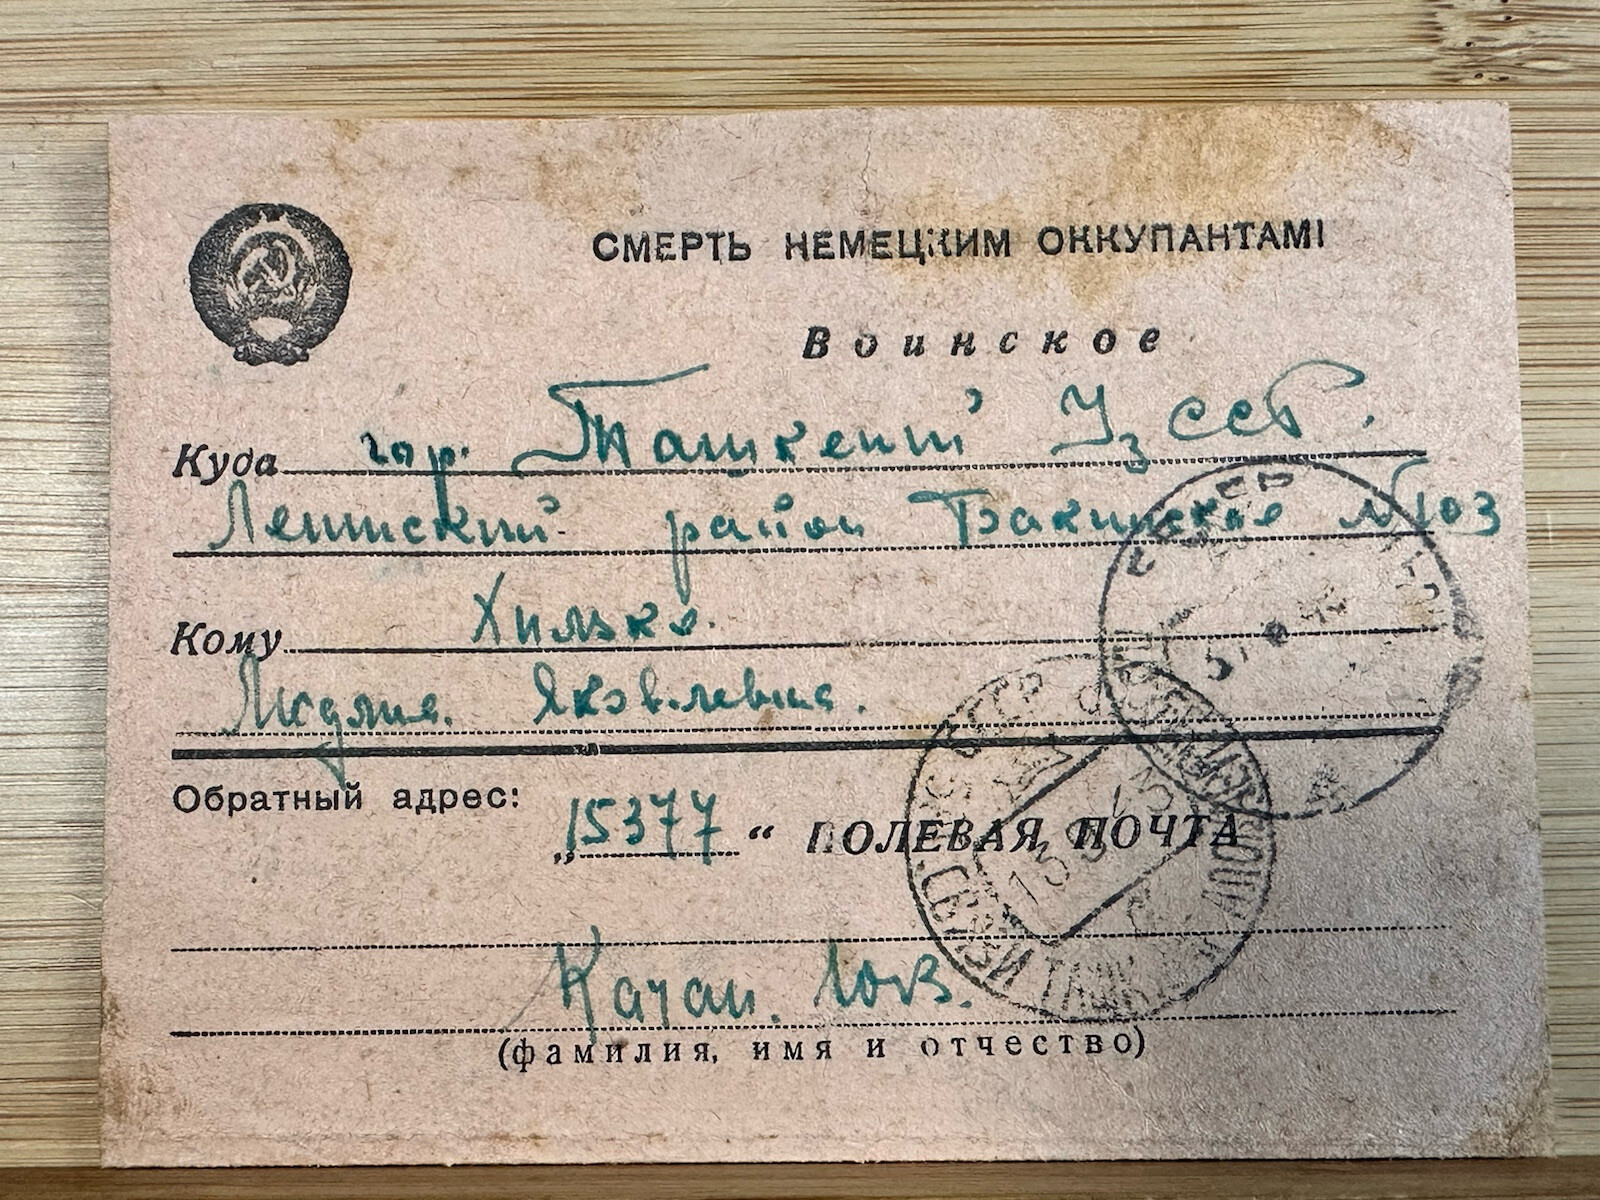 СМЕРТЬ НЕМЕЦКИМ ОККУПАНТАМ!
Воинское
Куда гор. Ташкент УзССР.
Ленинский район Бакинская №103
Кому Хилько.
Людмиле Яковлевне.
Обратный адрес:
„15377“ ПОЛЕВАЯ ПОЧТА
Каган. Ю.В.
(фамилия, имя и отчество)